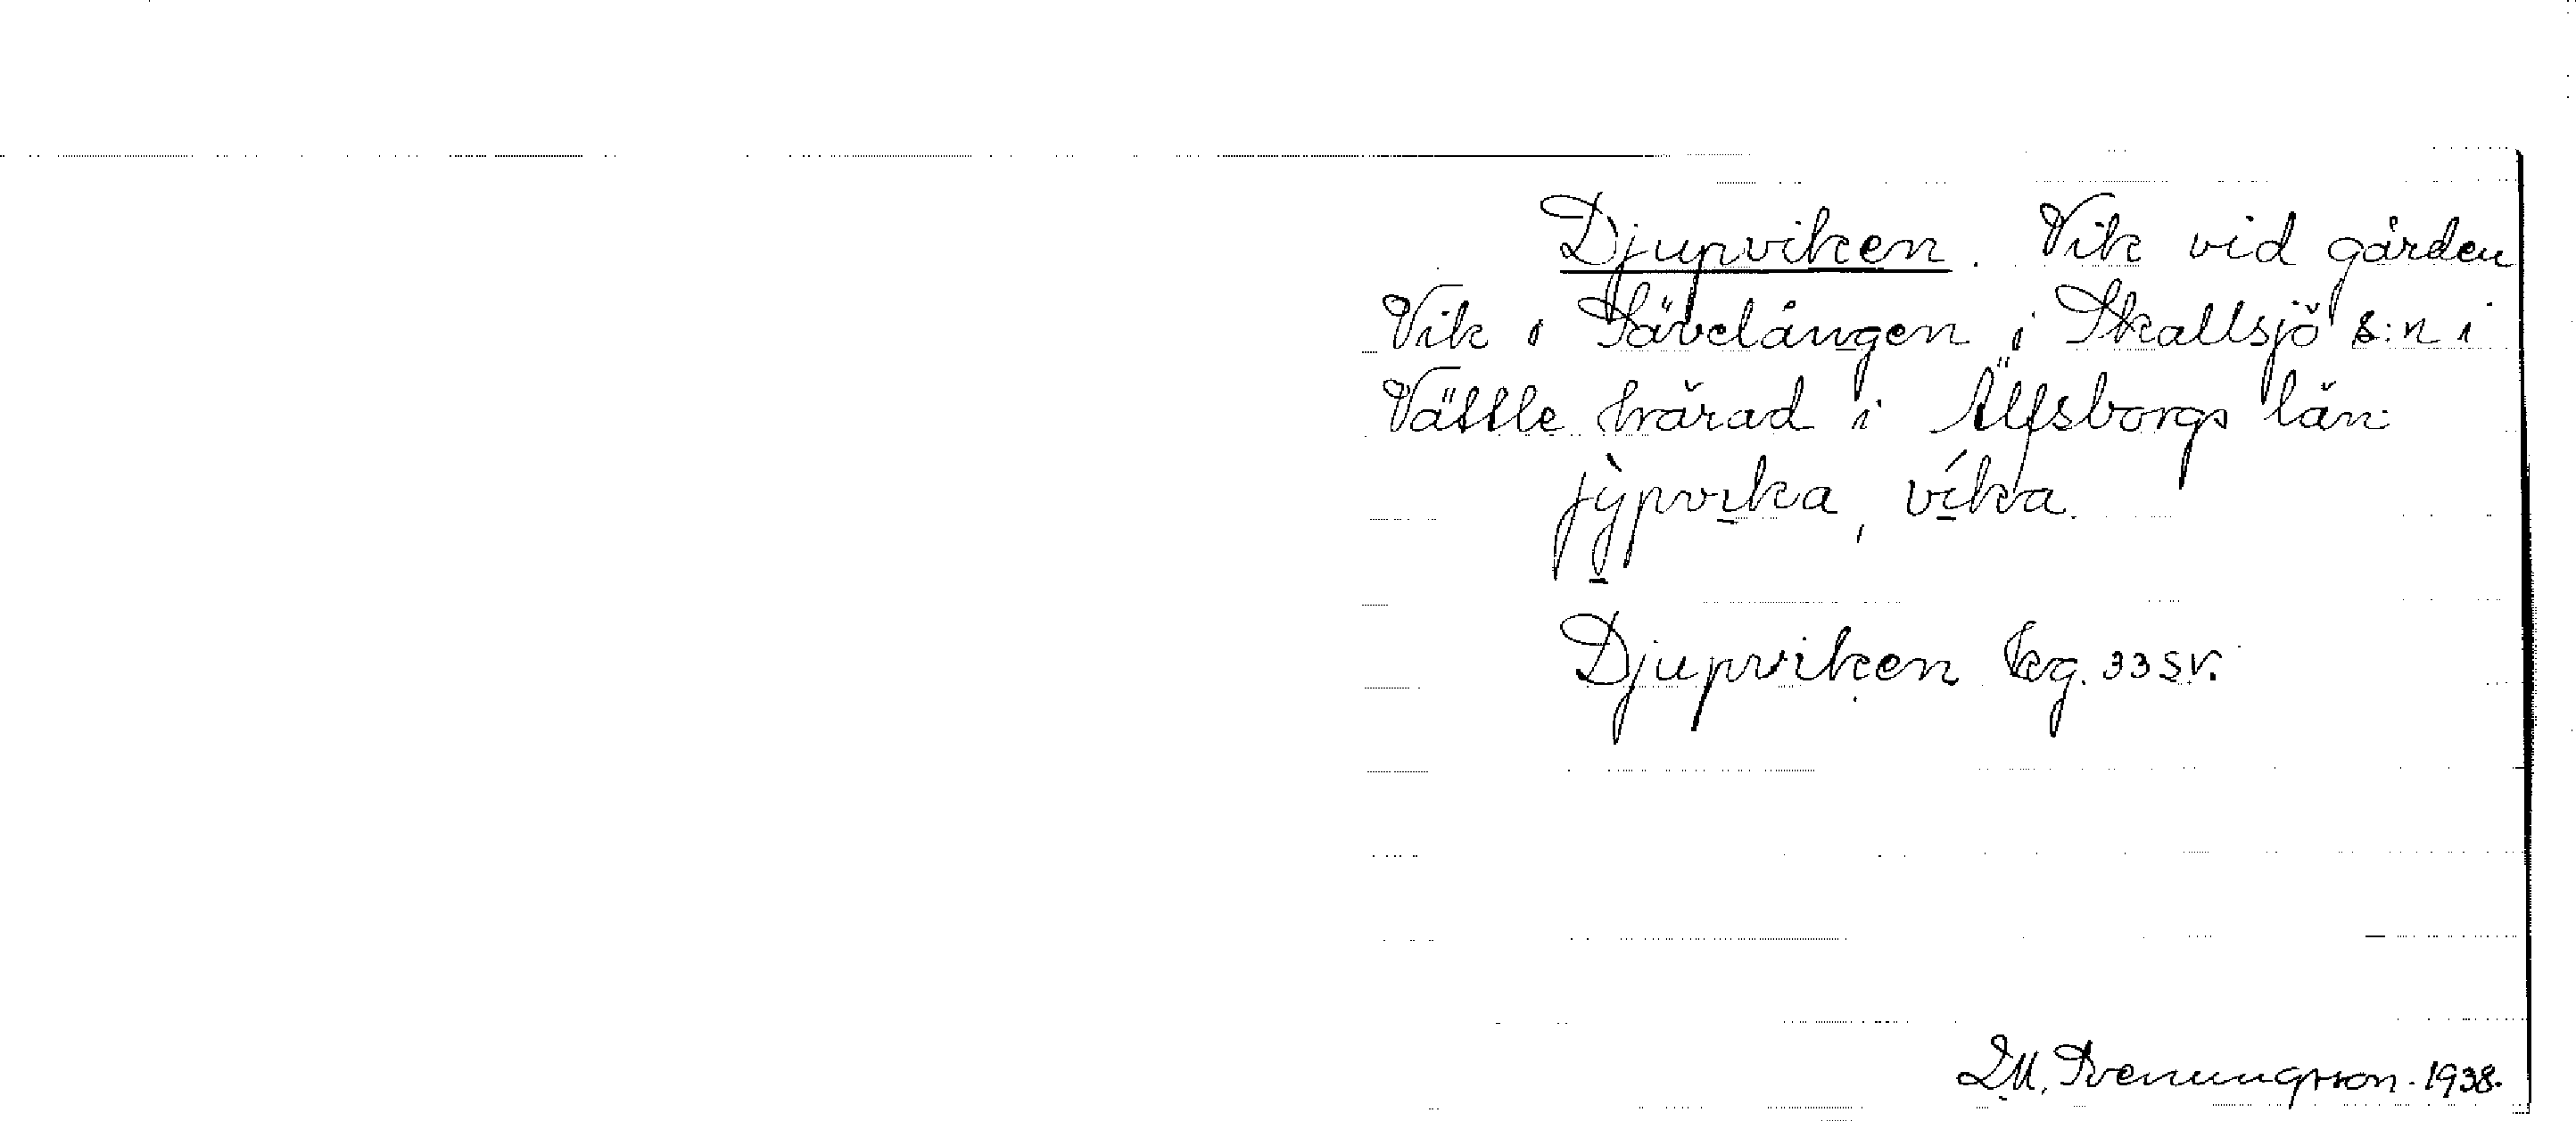 Djupviken. Vik vid gården
Vik i Sävelången i Skallsjö s:n i
Vättle härad i Älfsborgs län.
jỳ̱pvi̱ka, ví̱ka.
Djupviken kg. 33 SV.
D.M. Svenungsson. 1938.